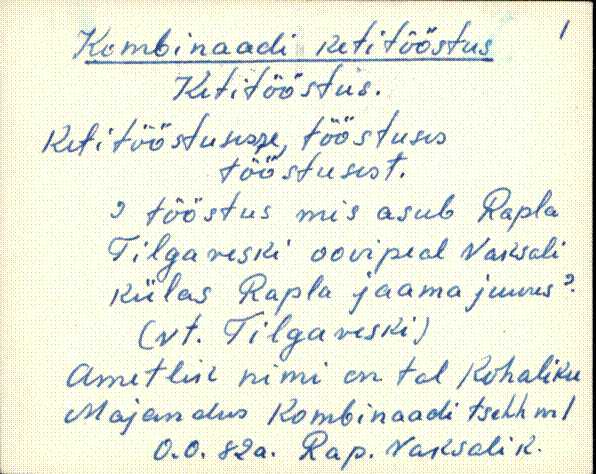 1
Kombinaadi ketitööstus
Ketitööstus.
Ketitööstusesse, tööstuses
tööstusest.
? tööstus mis asub Rapla
Tilgaveski oovipeal Vaksali
külas Rapla jaama juures?
(vt. Tilgaveski)
Ametlik nimi on tal Kohaliku
Majandus Kombinaadi tsehh nr 1
O.O. 82a. Rap. Vaksali k.